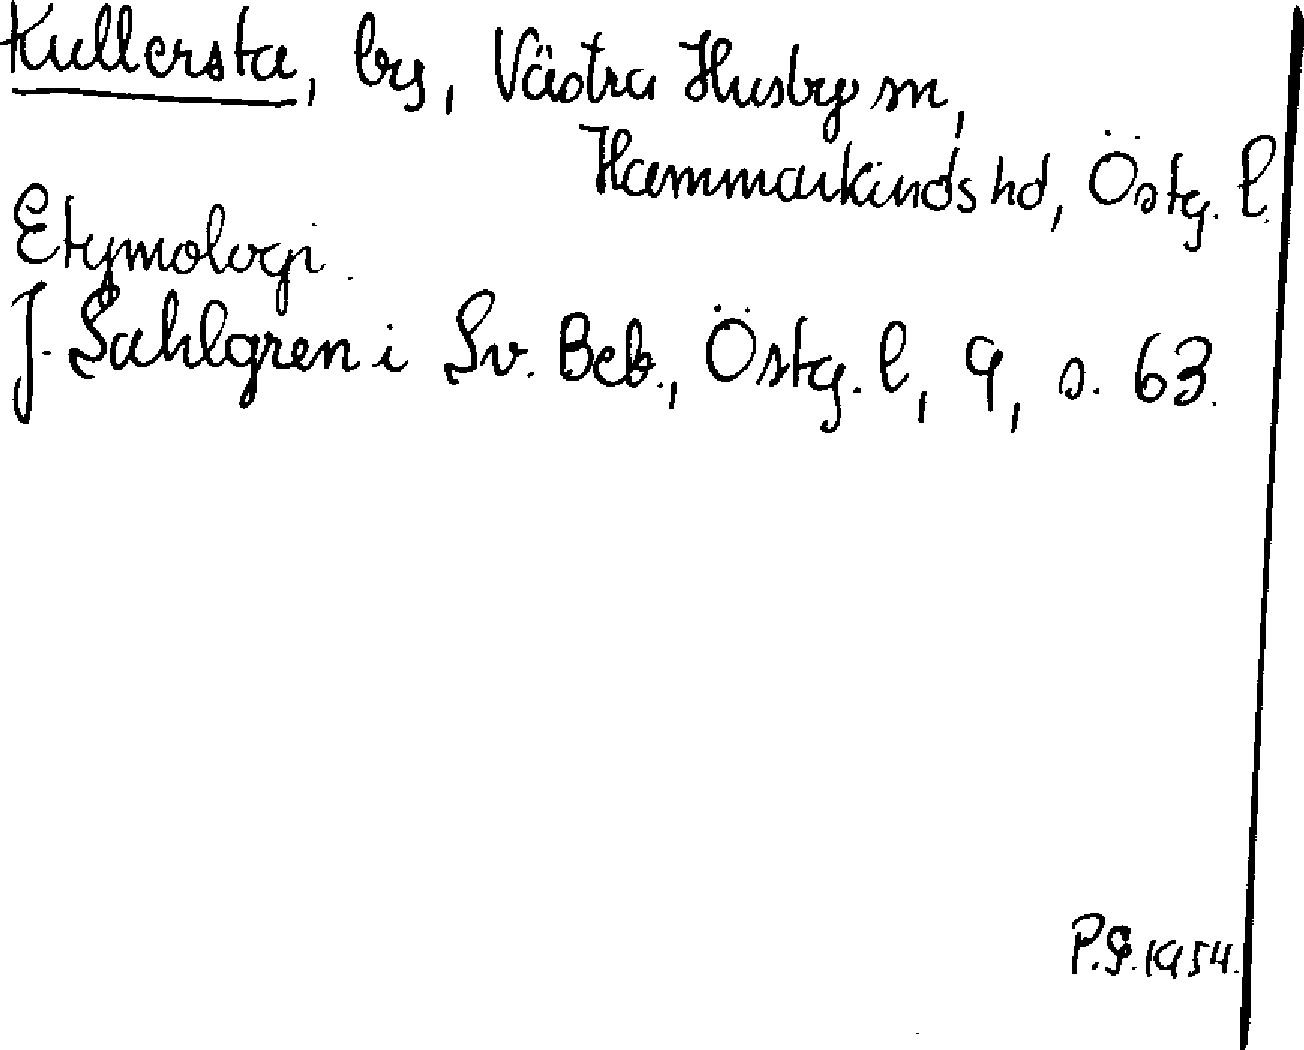 Kullersta, by, Västra Husby sn,
Hammarkinds hd, Östg. l.
Etymologi.
J. Sahlgren i Sv. Beb., Östg. l, 9, s. 63.
P.S. 1954.